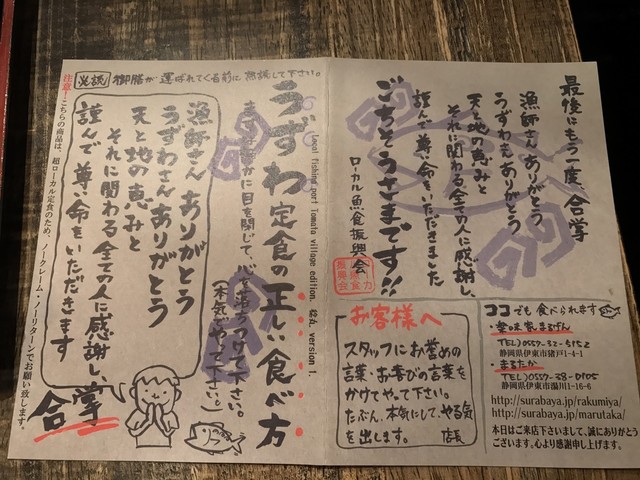 必読!
御膳が運ばれてくる前に熟読して下さい。
うずわ定食の正しい食べ方
Local fishing port Tomato village edition.
version 1.
まずは静かに目を閉じて、心を落ちつけて下さい。
(本気でやって下さい。)
漁師さんありがとう
うずわさんありがとう
天と地の恵みと
それに関わる全ての人に感謝し、
謹んで尊い命をいただきます
合掌
注意!こちらの商品は、超ローカル定食のため、ノークレーム・ノーリターンでお願い致します。
最後にもう一度、合掌
漁師さんありがとう
うずわさんありがとう
天と地の恵みと
それに関わる全ての人に感謝し、
謹んで尊い命をいただきました
ごちそうさまです!!
ローカル魚食振興会
お客様へ
スタッフにお誉めの
言葉・お喜びの言葉を
かけてやって下さい。
たぶん、本気にして、やる気
を出します。
店長
ココでも食べられます
・楽味家まるげん
TEL)0557-32-5152
静岡県伊東市猪戸1-4-1
・まるたか
TEL)0557-38-0105
静岡県伊東市湯川1-16-6
http://surabaya.jp/rakumiya/
http://surabaya.jp/marutaka/
本日はご来店下さいまして、誠にありがとう
ございます。心より感謝申し上げます。